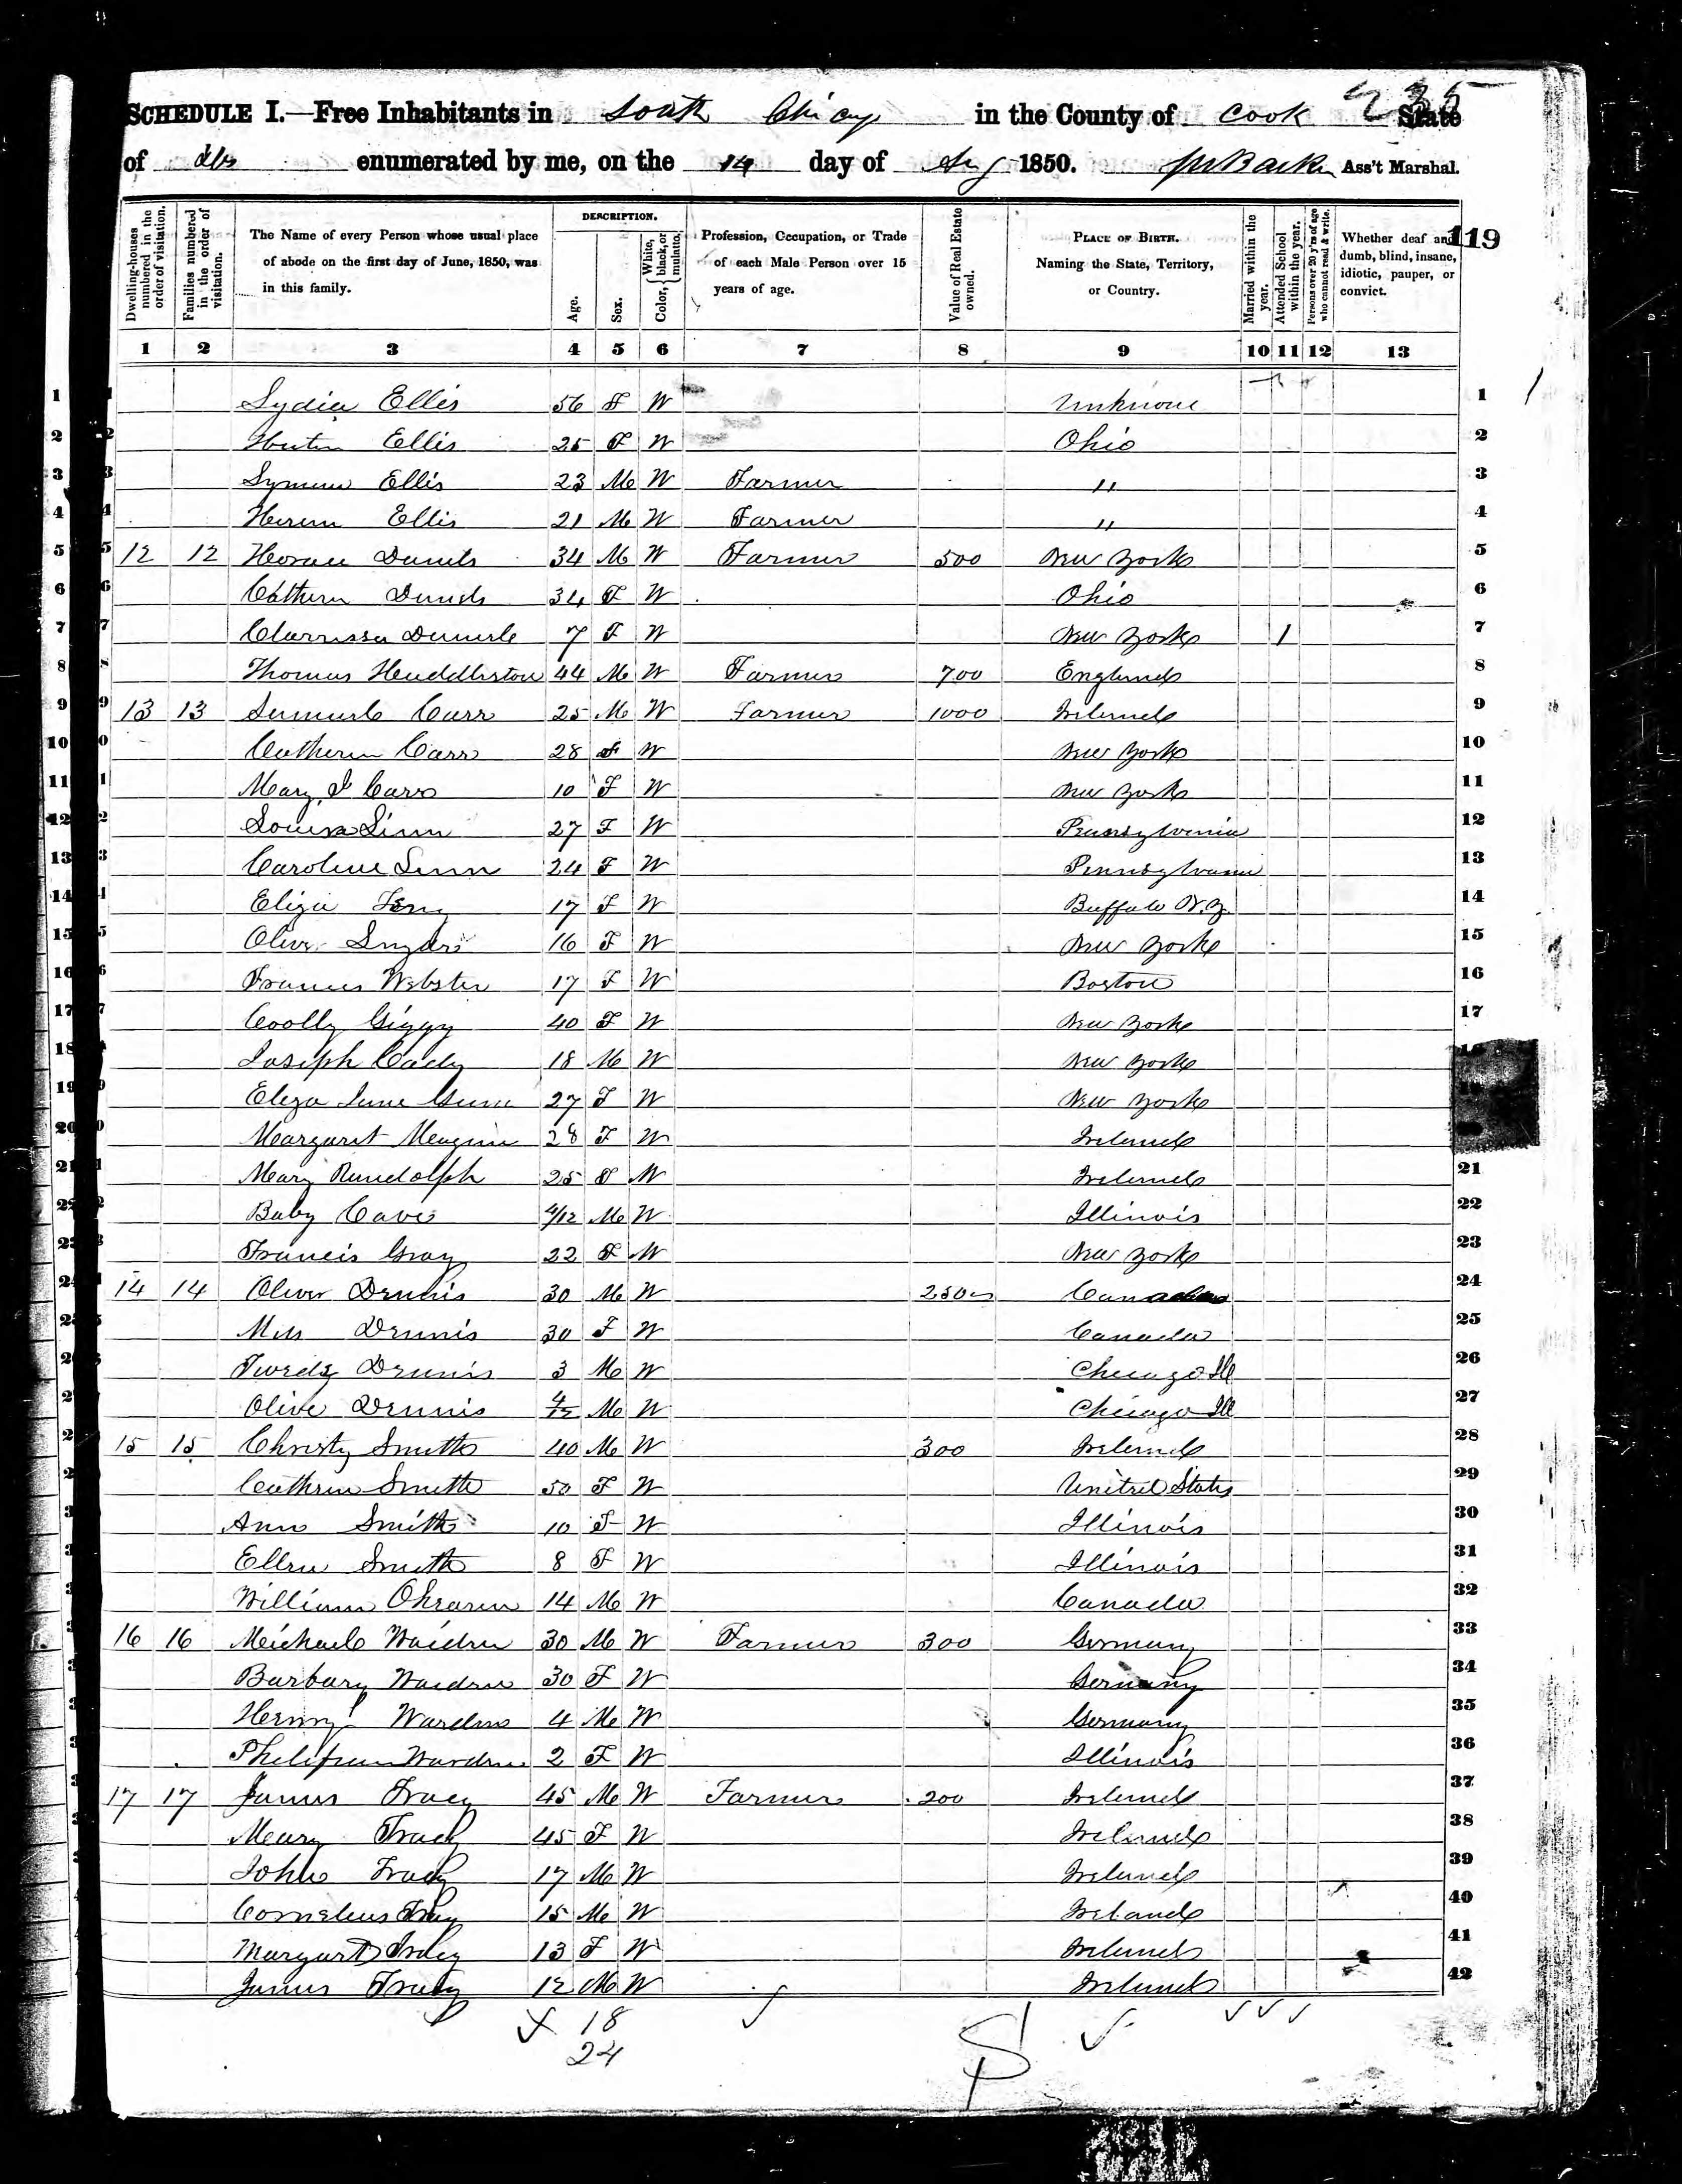 235
SCHEDULE I.—Free Inhabitants in South Chicago in the County of Cook State
of Ills enumerated by me, on the 14 day of Aug 1850. Ass't Marshal.
119
Dwelling-houses numbered in the order of visitation.
Families numbered in the order of visitation.
The Name of every Person whose usual place of abode on the first day of June, 1850, was in this family.
DESCRIPTION.
Age.
Sex.
Color, { White, black, or mulatto.
Profession, Occupation, or Trade of each Male Person over 15 years of age.
Value of Real Estate owned.
PLACE OF BIRTH. Naming the State, Territory, or Country.
Married within the year.
Attended School within the year.
Persons over 20 y'rs of age who cannot read & write.
Whether deaf and dumb, blind, insane, idiotic, pauper, or convict.
1 2 3 4 5 6 7 8 9 10 11 12 13
1 Lydia Ellis 56 F W Unknown 1
2 Ellis 25 F W Ohio 2
3 Ellis 23 M W Farmer " 3
4 Hiram Ellis 21 M W Farmer " 4
5 12 12 Horace 34 M W Farmer 500 New York 5
6 Cathern 34 F W Ohio 6
7 Clarrissa 7 F W New York 1 7
8 Thomas Huddleston 44 M W Farmer 700 England 8
9 13 13 Samuel Carr 25 M W Farmer 1000 Ireland 9
10 Catherin Carr 28 F W New York 10
11 Mary J Carr 10 F W New York 11
12 Louisa Linn 27 F W Pennsylvania 12
13 Caroline Linn 24 F W Pennsylvania 13
14 Eliza 17 F W Buffalo N.Y. 14
15 Olive 16 F W New York 15
16 Frances Webster 17 F W Boston 16
17 Coolly Giggy 40 F W New York 17
18 Joseph Cady 18 M W New York
19 Eliza Jane 27 F W New York
20 Margaret 28 F W Ireland
21 Mary Randolph 25 F W Ireland 21
22 Baby 4/12 M W Illinois 22
23 Francis Gray 22 F W New York 23
14 14 Oliver Dennis 30 M W Canada 24
Dennis 30 F W Canada 25
Dennis 3 M W Chicago Ill 26
Olive Dennis 4/12 M W Chicago Ill 27
15 15 Christy Smith 40 M W 300 Ireland 28
Cathrin Smith 50 F W United States 29
Ann Smith 10 F W Illinois 30
Ellen Smith 8 F W Illinois 31
William 14 M W Canada 32
16 16 Michael 30 M W Farmer 300 Germany 33
Barbary 30 F W Germany 34
Henry 4 M W Germany 35
2 F W Illinois 36
17 17 James Tracy 45 M W Farmer 200 Ireland 37
Mary Tracy 45 F W Ireland 38
John Tracy 17 M W Ireland 39
Cornelius Tracy 15 M W Ireland 40
Margaret Tracy 13 F W Ireland 41
James Tracy 12 M W Ireland 42
18
24